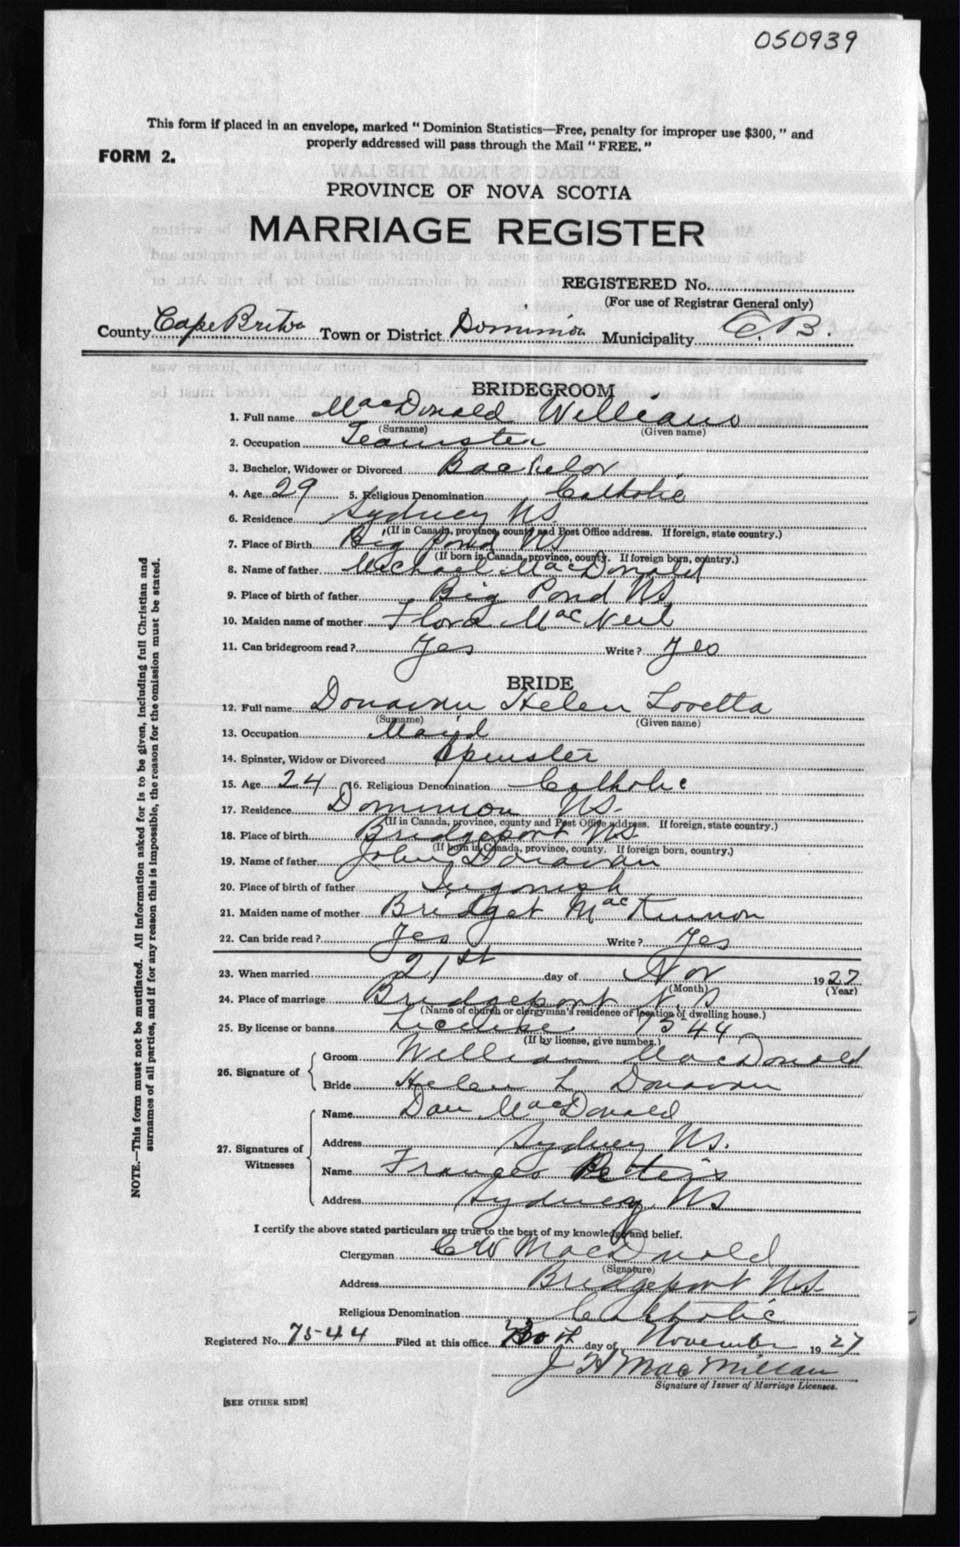 050939
This form if placed in an envelope, marked "Dominion Statistics—Free, penalty for improper use $300," and
properly addressed will pass through the Mail "FREE."
FORM 2.
PROVINCE OF NOVA SCOTIA
MARRIAGE REGISTER
REGISTERED No.
(For use of Registrar General only)
County Cape Breton Town or District Dominion Municipality C. B.
BRIDEGROOM
1. Full name MacDonald William
(Surname) (Given name)
2. Occupation Teamster
3. Bachelor, Widower or Divorced Bachelor
4. Age 29 5. Religious Denomination Catholic
6. Residence Sydney NS
(If in Canada, province, county and Post Office address. If foreign, state country.)
7. Place of Birth Big Pond NS
(If born in Canada, province, county. If foreign born, country.)
8. Name of father Michael MacDonald
9. Place of birth of father Big Pond NS
10. Maiden name of mother Flora MacNeil
11. Can bridegroom read? Yes Write? Yes
BRIDE
12. Full name Donavan Helen Loretta
(Surname) (Given name)
13. Occupation Maid
14. Spinster, Widow or Divorced Spinster
15. Age 24 16. Religious Denomination Catholic
17. Residence Dominion NS.
(If in Canada, province, county and Post Office address. If foreign, state country.)
18. Place of birth Bridgeport NS
(If born in Canada, province, county. If foreign born, country.)
19. Name of father John Donavan
20. Place of birth of father Ingonish
21. Maiden name of mother Bridget MacKinnon
22. Can bride read? Yes Write? Yes
23. When married 21st day of Nov 1927
(Month) (Year)
24. Place of marriage Bridgeport N.S
(Name of church or clergyman's residence or location of dwelling house.)
25. By license or banns License 7544
(If by license, give number.)
26. Signature of
Groom William MacDonald
Bride Helen L Donavan
27. Signatures of Witnesses
Name Dan MacDonald
Address Sydney NS.
Name Frances Peters
Address Sydney NS
I certify the above stated particulars are true to the best of my knowledge and belief.
Clergyman CW MacDonald
(Signature)
Address Bridgeport NS
Religious Denomination Catholic
Registered No. 7544 Filed at this office 30th day of November 1927
J H MacMillan
Signature of Issuer of Marriage Licenses.
[SEE OTHER SIDE]
NOTE.—This form must not be mutilated. All information asked for is to be given, including full Christian and
surnames of all parties, and if for any reason this is impossible, the reason for the omission must be stated.